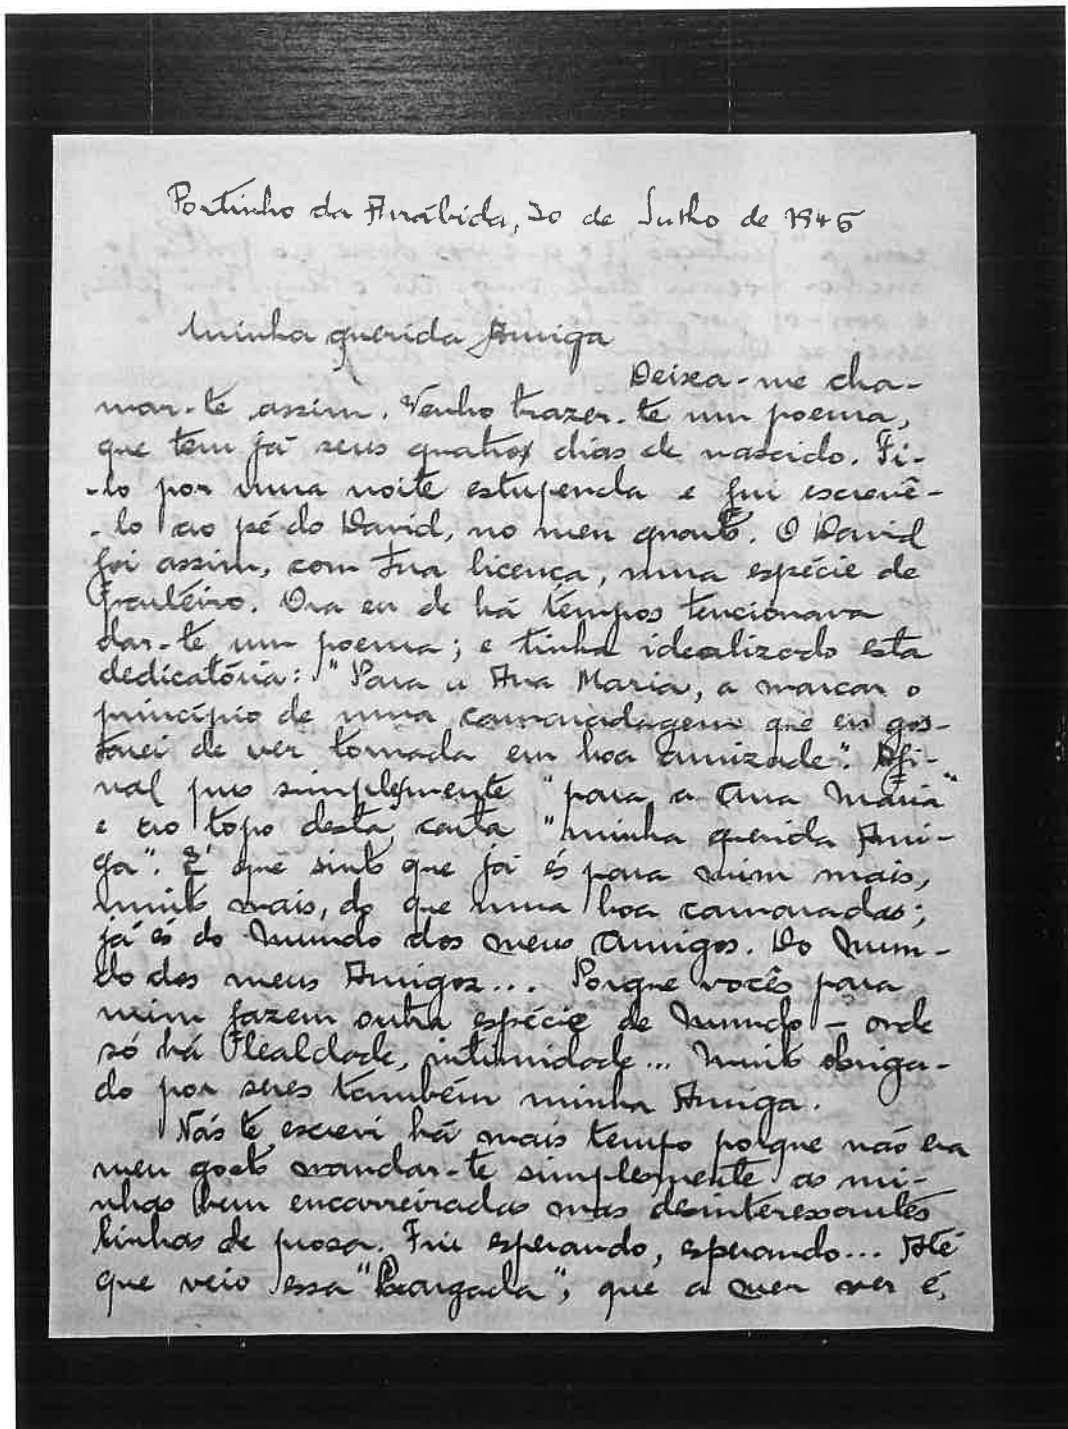 Portinho da Arrábida, 20 de Julho de 1946
Minha querida Amiga
Deixa-me cha-
mar-te assim. Venho trazer-te um poema,
que tem já seus quatro dias de nascido. Fi-
-lo por uma noite estupenda e fui escrevê-
-lo ao pé do David, no meu quarto. O David
foi assim, com tua licença, uma espécie de
parteiro. Ora eu de há tempos tencionava
dar-te um poema; e tinha idealizado esta
dedicatória: "Para a Ana Maria, a marcar o
princípio de uma camaradagem que eu gos-
tarei de ver tornada em boa amizade". Afi-
nal pus simplesmente "para a Ana Maria"
e ao topo desta carta "minha querida Ami-
ga". É que sinto que já és para mim mais,
muito mais, do que uma boa camarada;
já és do mundo dos meus Amigos. Do Mun-
do dos meus Amigos... Porque vocês para
mim fazem outra espécie de Mundo - onde
só há lealdade, intimidade... Muito obriga-
do por seres também minha Amiga.
Não te escrevi há mais tempo porque não era
meu gosto mandar-te simplesmente as mi-
nhas bem encarreiradas mas desinteressantes
linhas de prosa. Fui esperando, esperando... Até
que veio essa "Largada", que a meu ver é,